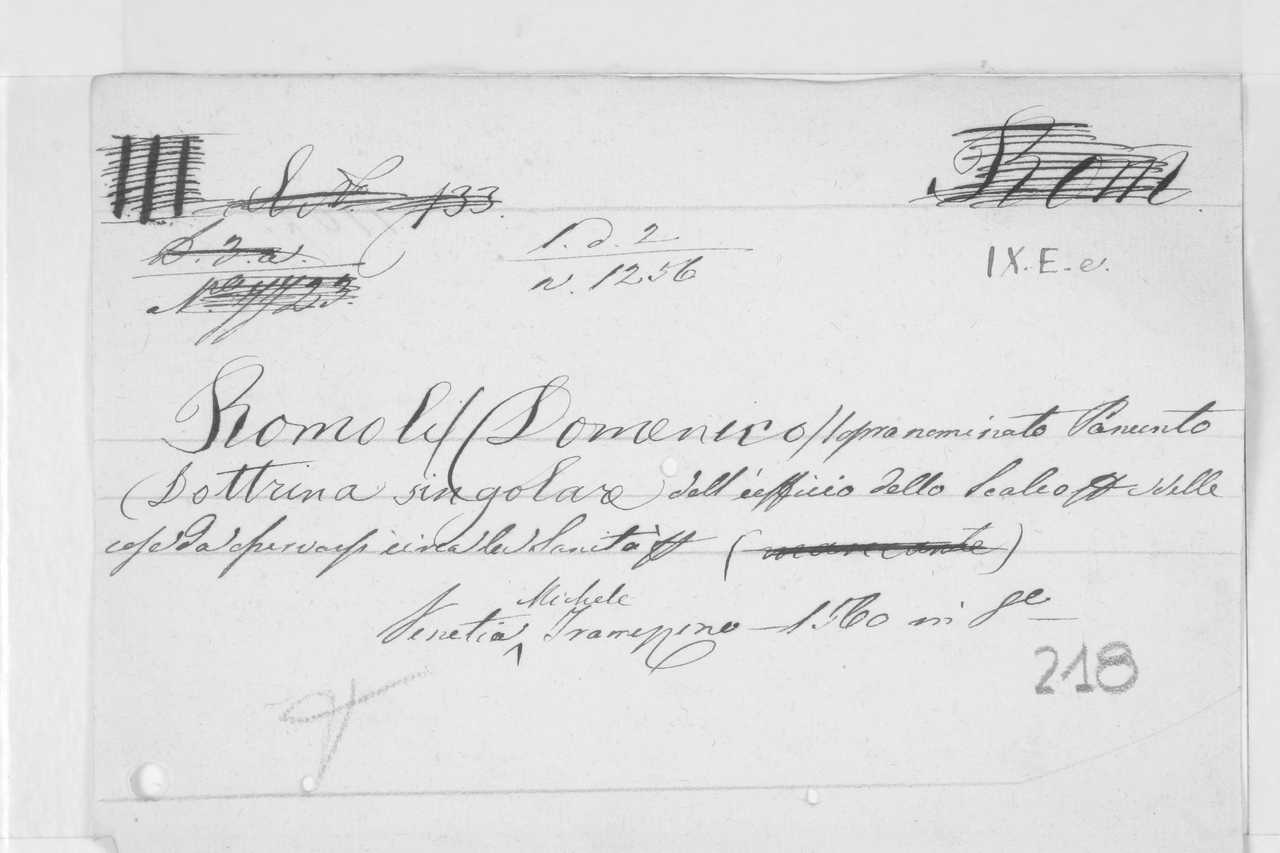 III N. 133. Rom
D. 3. a. 1. d. 2 IX. E. e.
n. 1256
Romoli (Domenico) sopranominato Panunto
Dottrina singolare dell'ufficio dello Scalco &c delle
cose da circa la Sanità &c
Michele
Venetia Tramezzino 1560 in 8e
218